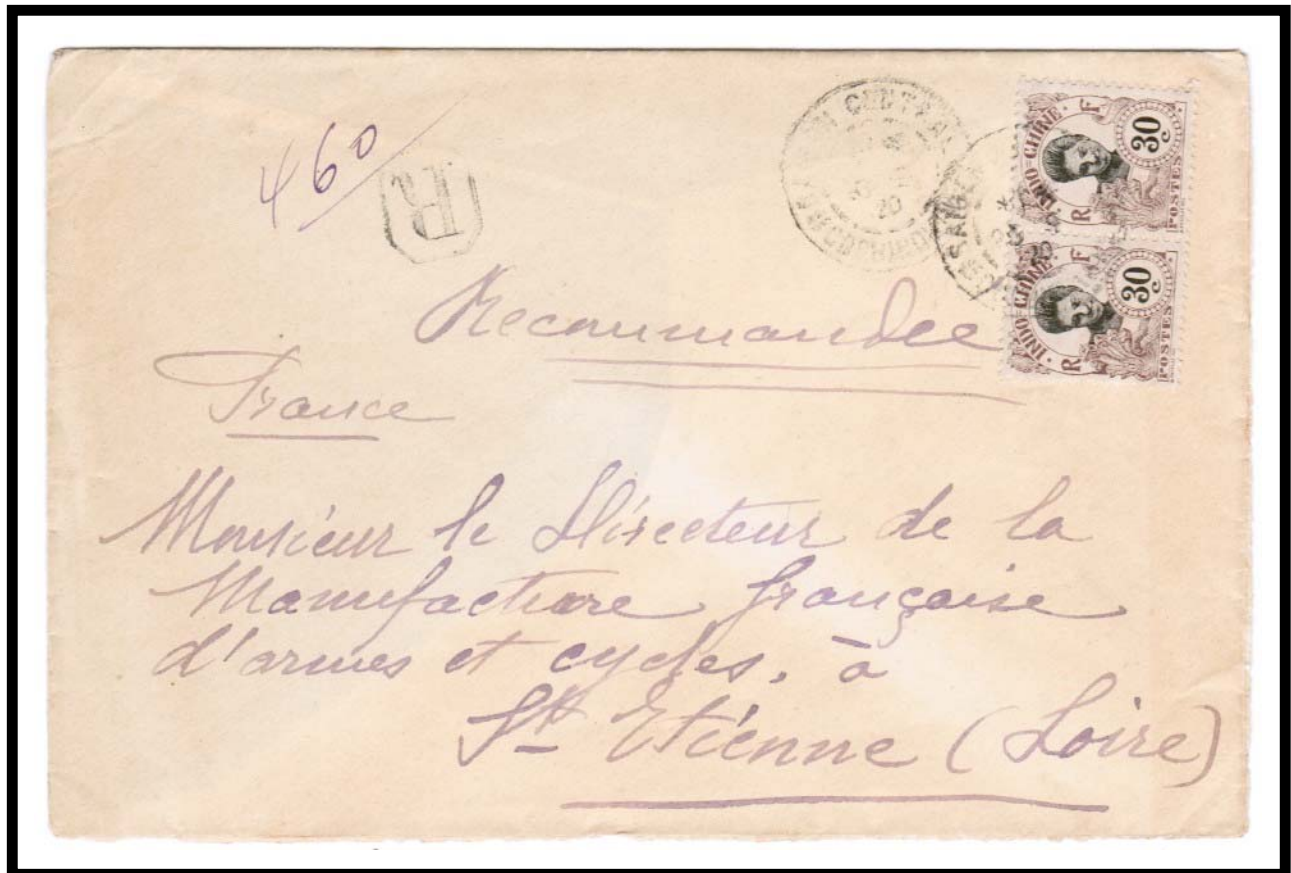 460
R
CENTRAL
20
INDO-CHINE
R F
30
POSTES
INDO-CHINE
R F
30
POSTES
Recommandée
France
Monsieur le Directeur de la
Manufacture française
d'armes et cycles. à
St Etienne (Loire)